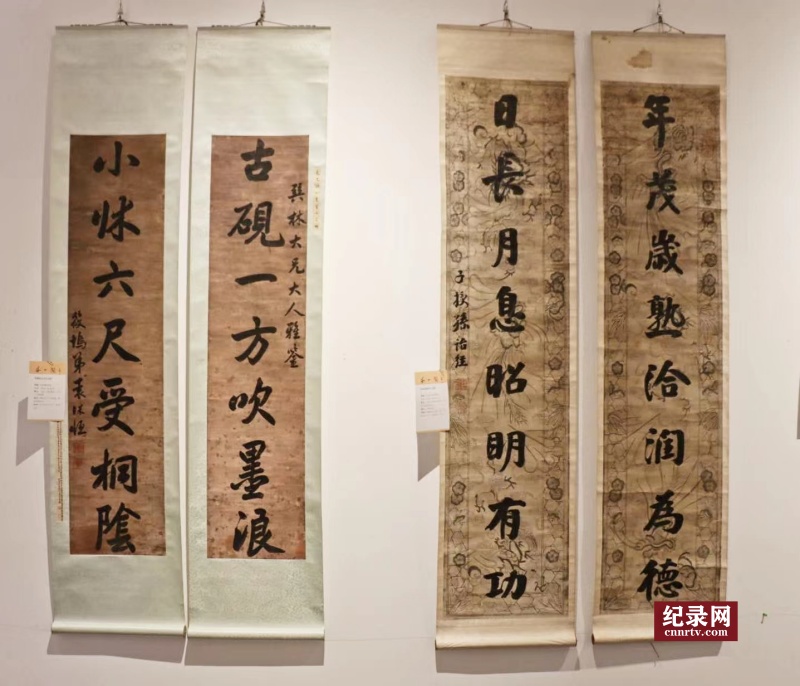 年茂歲熟洽潤為德
日長月息昭明有功
子授孫詒經
巽林大兄大人雅鑒
古硯一方吹墨浪
小牀六尺受桐陰
筱塢弟袁保恆
纪录网
cnnrtv.com